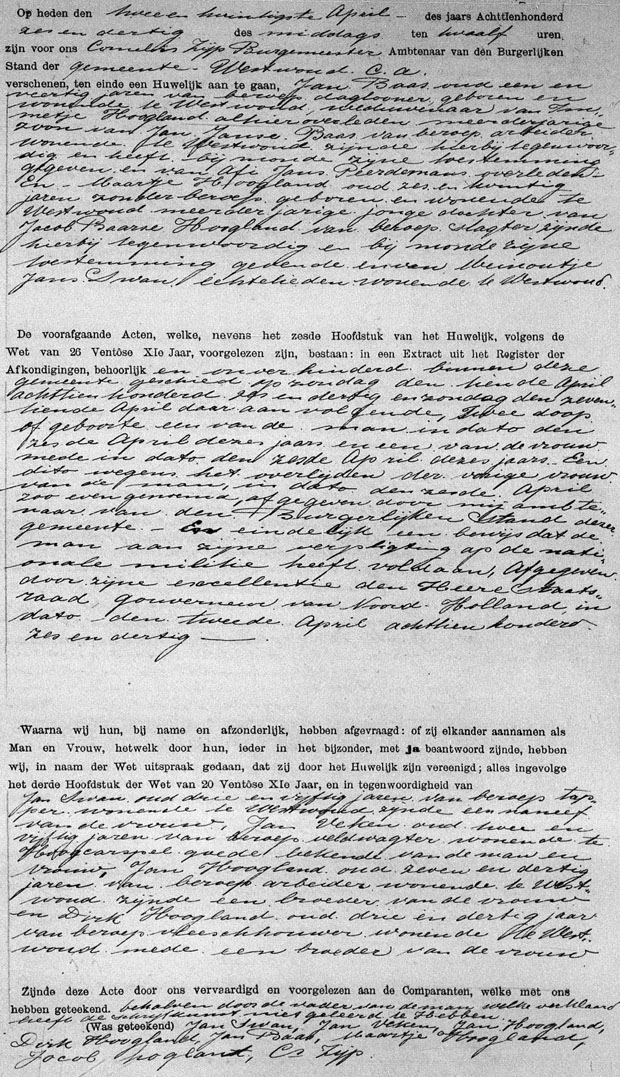 Op heden den twee en twintigste April - des jaars Achttienhonderd
zes en dertig des middags ten twaalf uren
zijn voor ons Cornelis Zijp Burgemeester Ambtenaar van den Burgerlijken
Stand der gemeente - Westwoud c. a.
verschenen, ten einde een Huwelijk aan te gaan, Jan Baas oud een en
veertig jaren van beroep daglooner geboren en
wonende te Westwoud weduwenaar van
metje Hoogland alhier overleden meerderjarige
zoon van Jan Janse Baas van beroep arbeider
wonende te Westwoud zijnde hierbij tegenwoor-
dig en heeft bij monde zijne toestemming
gegeven en van Afi Jans Peerdeman overleden -
En - Maartje Hoogland oud zes en twintig
jaren zonder beroep geboren en wonende te
Westwoud meerderjarige jonge dochter van
Jacob Baarse Hoogland van beroep slagter zijnde
hierbij tegenwoordig en bij monde zijne
toestemming gevende en van Meinoutje
Jans Swan, echtelieden wonende te Westwoud.
De voorafgaande Acten, welke, nevens het zesde Hoofdstuk van het Huwelijk, volgens de
Wet van 26 Ventôse XIe Jaar, voorgelezen zijn, bestaan: in een Extract uit het Register der
Afkondigingen, behoorlijk en onverhinderd binnen deze
gemeente geschied op zondag den tiende April
achttien honderd zes en dertig en zondag den zeven-
tiende April daar aan volgende, Twee doop
of geboorte een van de man in dato den
zesde April dezes jaars en een van de vrouw
mede in dato den zesde April dezes jaars. Een
dito wegens het overlijden der vorige vrouw
van de man, in dato den zesde April
zoo even genoemd, afgegeven door mij ambte-
naar van den Burgerlijken Stand dezer
gemeente - En eindelijk een bewijs dat de
man aan zijne verpligting op de nati-
onale militie heeft voldaan, Afgegeven
door zijne excellentie den Heere Staats-
raad, gouverneur van Noord-Holland, in
dato den tweede April achttien honderd
zes en dertig -
Waarna wij hun, bij name en afzonderlijk, hebben afgevraagd: of zij elkander aannamen als
Man en Vrouw, hetwelk door hun, ieder in het bijzonder, met ja beantwoord zijnde, hebben
wij, in naam der Wet uitspraak gedaan, dat zij door het Huwelijk zijn vereenigd; alles ingevolge
het derde Hoofdstuk der Wet van 20 Ventôse XIe Jaar, en in tegenwoordigheid van
Jan Swan, oud drie en vijftig jaren van beroep tap-
per wonende te Westwoud zijnde een neef
van de vrouw, Jan Veken oud twee en
vijftig jaren van beroep veldwagter wonende te
Hoogcarspel goede bekende van de man en
vrouw, Jan Hoogland oud zeven en dertig
jaren van beroep arbeider wonende te West-
woud zijnde een broeder van de vrouw
en Dirk Hoogland oud drie en dertig jaar
van beroep vleeschhouwer wonende te West-
woud mede een broeder van de vrouw
Zijnde deze Acte door ons vervaardigd en voorgelezen aan de Comparanten, welke met ons
hebben geteekend. behalven door de vader van de man welke verklaard
heeft de schrijfkunst niet geleerd te hebben.
(Was geteekend) Jan Swan, Jan Veken, Jan Hoogland,
Dirk Hoogland, Jan Baas, Maartje Hoogland,
Jacob hogland, Cs Zijp.